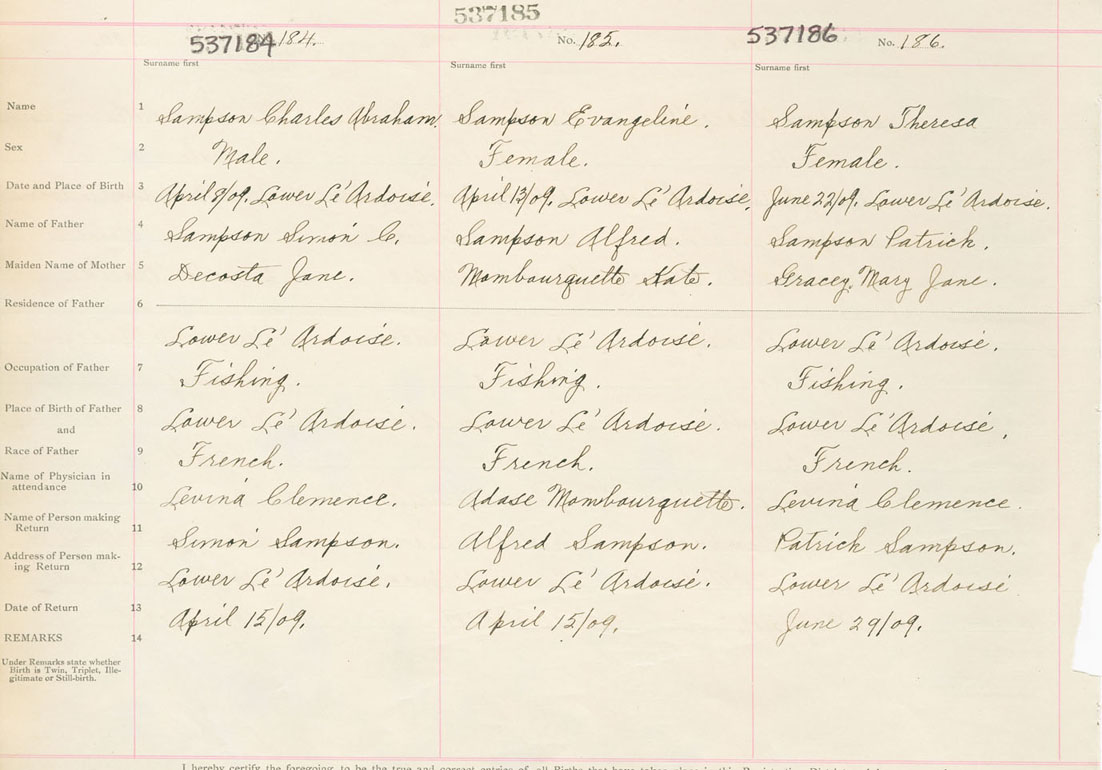 537184 184. 537185 No. 185. 537186 No. 186.
Surname first Surname first Surname first
Name 1 Sampson Charles Abraham. Sampson Evangeliné. Sampson Theresa
Sex 2 Male. Female. Female.
Date and Place of Birth 3 April 9/09. Lower Le' Ardoisé. April 13/09. Lower Le' Ardoisé. June 22/09. Lower Le' Ardoisé.
Name of Father 4 Sampson Simon C. Sampson Alfred. Sampson Patrick.
Maiden Name of Mother 5 Decosta Jane. Mombourquette Kate. Gracey Mary Jane.
Residence of Father 6
Lower Le' Ardoisé. Lower Le' Ardoisé. Lower Le' Ardoisé.
Occupation of Father 7 Fishing. Fishing. Fishing.
Place of Birth of Father 8 Lower Le' Ardoisé. Lower Le' Ardoisé. Lower Le' Ardoisé,
and
Race of Father 9 French. French. French.
Name of Physician in
attendance 10 Levina Clemence. Adase Mombourquette. Levina Clemence.
Name of Person making
Return 11 Simon Sampson. Alfred Sampson. Patrick Sampson.
Address of Person mak-
ing Return 12 Lower Le' Ardoisé. Lower Le' Ardoisé. Lower Le' Ardoisé
Date of Return 13 April 15/09. April 15/09. June 29/09.
REMARKS 14
Under Remarks state whether
Birth is Twin, Triplet, Ille-
gitimate or Still-birth.
I hereby certify the foregoing to be the true and correct entries of all Births that have taken place in this Registration District